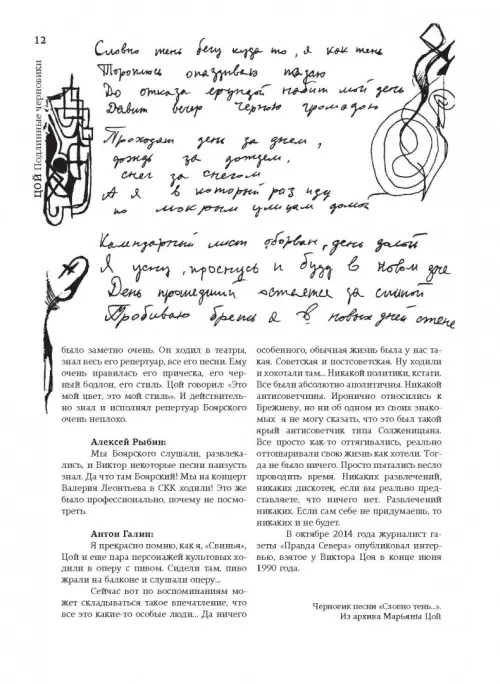 12
ЦОЙ Подлинные черновики
Словно тень бегу куда то, я как тень
Тороплюсь опаздываю падаю
До отказа ерундой набит мой день
Давит вечер чёрною громадою
Проходит день за днем,
дождь за дождем,
снег за снегом
А я в который раз иду
по мокрым улицам домой
Календарный лист оборван, день долой
Я усну, проснусь и буду в новом дне
День прошедший остается за спиной
Пробиваю брешь я в новых дней стене
было заметно очень. Он ходил в театры,
знал весь его репертуар, все его песни. Ему
очень нравилась его прическа, его чер-
ный бодлон, его стиль. Цой говорил: «Это
мой цвет, это мой стиль». И действитель-
но знал и исполнял репертуар Боярского
очень неплохо.
Алексей Рыбин:
Мы Боярского слушали, развлека-
лись, и Виктор некоторые песни наизусть
знал. Да что там Боярский! Мы на концерт
Валерия Леонтьева в СКК ходили! Это же
было профессионально, почему не посмо-
треть.
Антон Галин:
Я прекрасно помню, как я, «Свинья»,
Цой и еще пара персонажей культовых хо-
дили в оперу с пивом. Сидели там, пиво
жрали на балконе и слушали оперу...
Сейчас вот по воспоминаниям мо-
жет складываться такое впечатление, что
все это какие-то особые люди... Да ничего
особенного, обычная жизнь была у нас та-
кая. Советская и постсоветская. Ну ходили
и хохотали там... Никакой политики, кстати.
Все были абсолютно аполитичны. Никакой
антисоветчины. Иронично относились к
Брежневу, но ни об одном из своих знако-
мых я не могу сказать, что это был такой
ярый антисоветчик типа Солженицына.
Все просто как-то оттягивались, реально
оттопыривали свою жизнь как хотели. Тог-
да не было ничего. Просто пытались весело
проводить время. Никаких развлечений,
никаких дискотек, если вы реально пред-
ставляете, что ничего нет. Развлечений
никаких. Если сам себе не придумаешь, то
никаких и не будет.
В октябре 2014 года журналист га-
зеты «Правда Севера» опубликовал интер-
вью, взятое у Виктора Цоя в конце июня
1990 года.
Черновик песни «Словно тень...».
Из архива Марьяны Цой